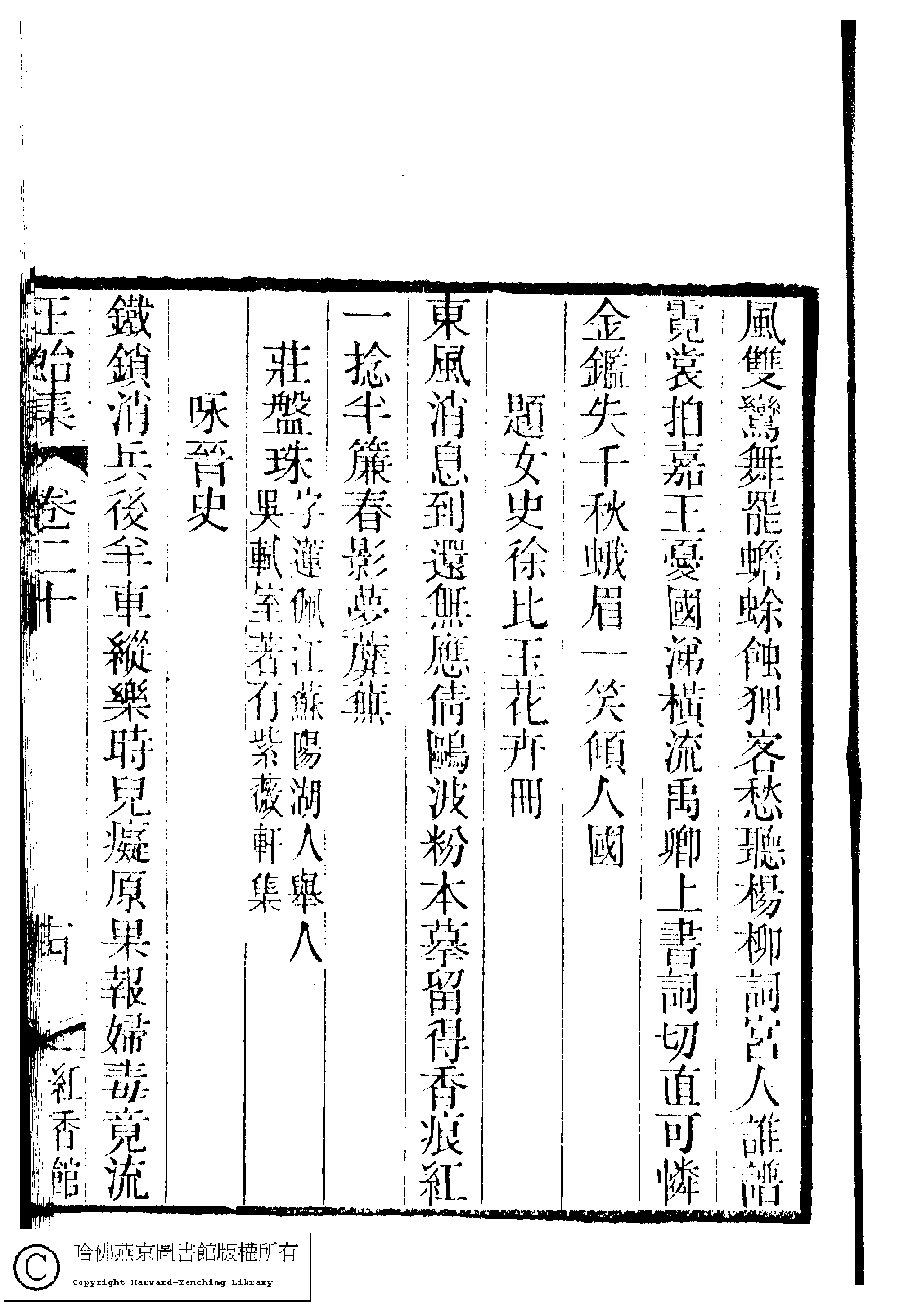 風雙鸞舞罷蟾蜍蝕狎客愁聽楊柳詞宮人誰譜
霓裳拍嘉王憂國涕橫流禹卿上書詞切直可憐
金鑑失千秋蛾眉一笑傾人國
題女史徐比玉花卉冊
東風消息到還無應倩鷗波粉本摹留得香痕紅
一捻半簾春影夢蘼蕪
莊盤珠字蓮佩江蘇陽湖人舉人
吳軾室著有紫薇軒集
咏晉史
鐵鎖消兵後羊車縱樂時兒癡原果報婦毒竟流
正始集 卷二十 古 紅香館
哈佛燕京圖書館版權所有
Copyright Harvard-Yenching Library